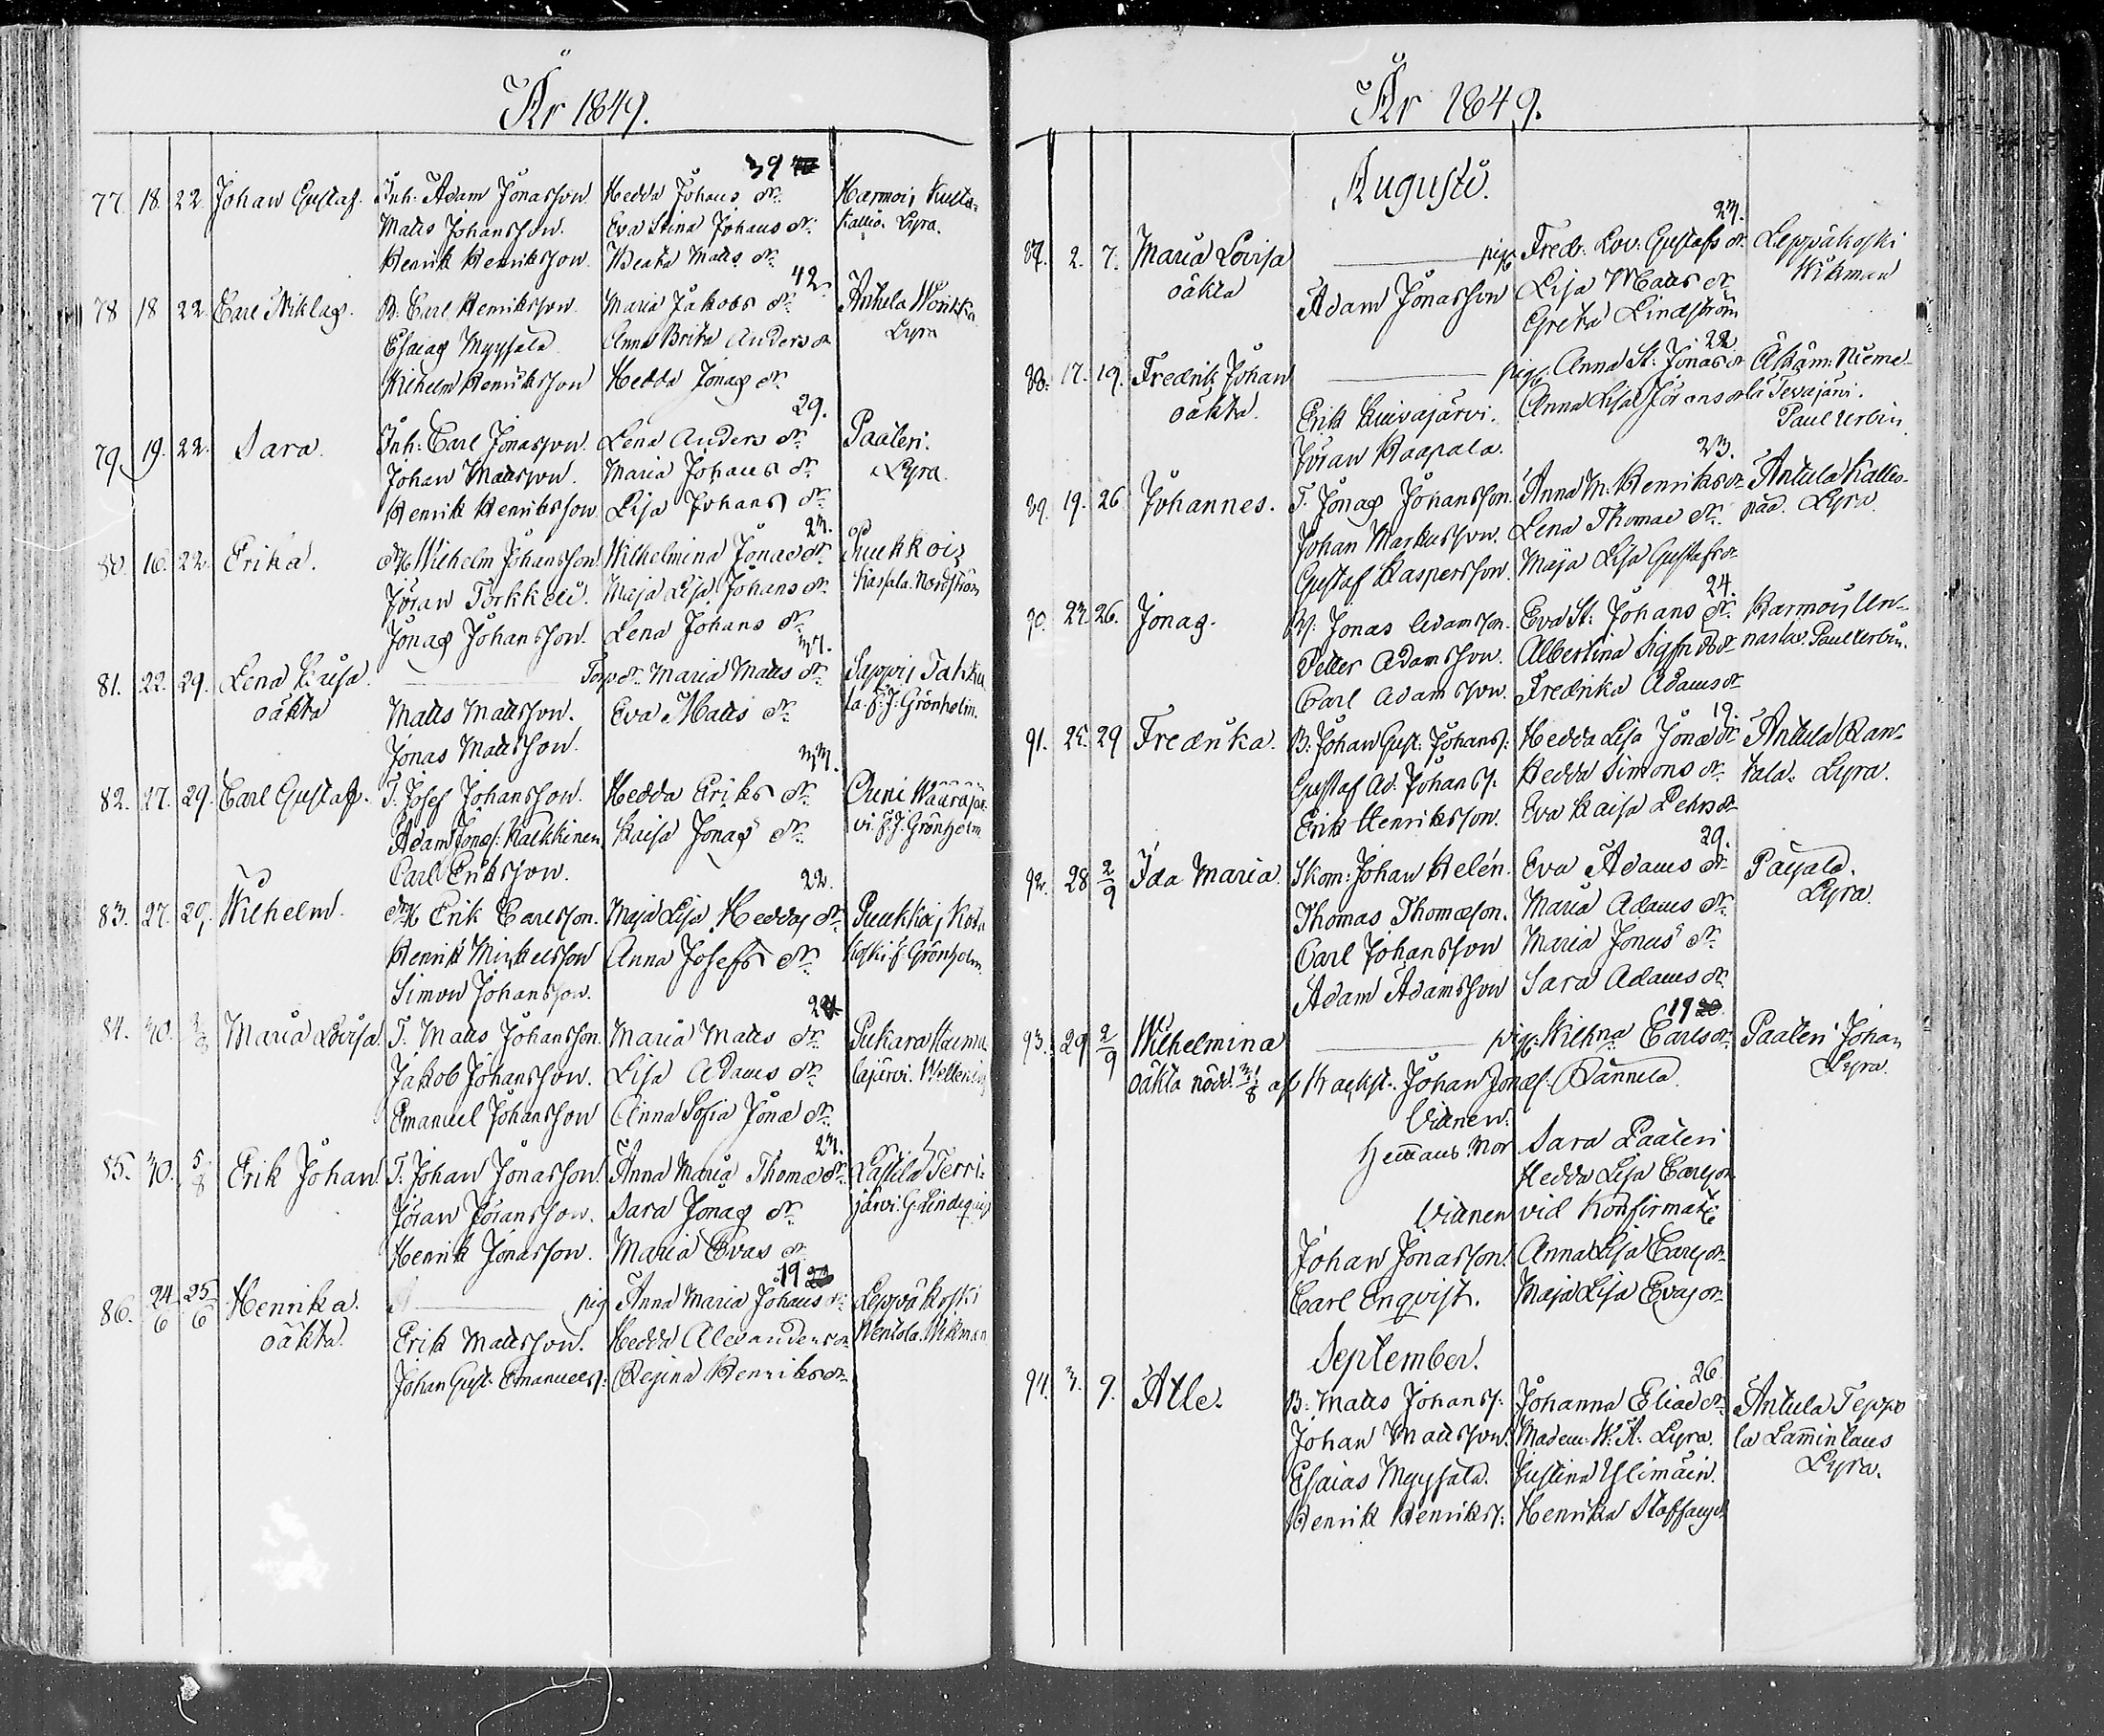 År 1849.
39
77. 18. 22. Johan Gustaf. Inh: Adam Jonasson. Hedda Johans dr. Karmois Kulta-
Matts Johansson. Eva Stina Johans dr. kallio. Lyra.
Henrik Henriksson. Beata Matts dr.
42.
78 18 22 Carl Niklas. B. Carl Henriksson. Maria Jakobs dr. Antula
Esaias Myysala Anna Brita Anders dr Lyra
Wilhelm Henriksson Hedda Jonas dr.
29.
79. 19. 22. Sara. Inh: Carl Jonasson. Lena Anders dr. Paateri.
Johan Mattsson. Maria Johans dr. Lyra.
Henrik Henriksson Lisa Johans dr.
23.
80. 16. 22. Erika. Wilhelm Johansson. Wilhelmina Jonae dr.
Jöran Torkkeli. Maja Lisa Johans dr. Nordström
Jonas Johansson. Lena Johans dr.
81. 22. 29. Lena Kaisa. Maria Matts dr.
oäkta Matts Mattsson. Eva Matts dr. la. F. J. Grönholm.
Jonas Mattsson.
33.
82. 27. 29. Carl Gustaf. T. Josef Johansson. Hedda Eriks dr. Ouni Waarajär-
Adam Jonaes: Kaisa Jonas dr. vi. F. J. Grönholm
Carl Eriksson.
22.
83. 27. 29. Wilhelm. Erik Carlsson. Maja Lisa Heddas dr.
Henrik Mickelsson Anna Josefs dr. koski F. Grönholm.
Simon Johansson.
84. 30. Maria Lovisa. T. Matts Johansson. Maria Matts dr.
Jakob Johansson. Lisa Adams dr. lajärvi.
Emanuel Johansson Anna Sofia Jonae dr.
23.
85. 30. 5/8 Erik Johan. T. Johan Jonasson. Anna Maria Thomae dr. Lassila Terri-
Jöran Jöransson. Sara Jonas dr. järvi. G. Lindeqvist
Henrik Jonasson. Maria Evas dr.
19
86. 24/6 25/6 Henrika. pig Anna Maria Johans dr. Leppäkoski
oäkta. Erik Mattsson. Hedda Alexanders dr Wikman
Johan Gust. Emanuelss: Regina Henriks dr
År 1849.
Augusti.
23.
87. 2. 7. Maria Lovisa pig. Fredr: Lov: Gustafs dr. Leppäkoski
oäkta Adam Jonasson Lisa Matts dr. Wikman
Greta Lindström
22
88. 17. 19. Fredrik Johan pig. Anna St: Jonas dr
oäkta. Erik Kuivajärvi. Anna Lisa Jörans dr
Jöran Kaapala. Paul Urbin
23.
89. 19. 26 Johannes. T. Jonas Johansson. Anna M: Henriks dr Antula Kallio-
Johan Markusson. Lena Thomae dr. pää. Lyra.
Gustaf Kaspersson. Maja Lisa Gustafs dr
24.
90. 23. 26. Jonas. Jonas Adamson. Eva St: Johans dr. Karmois Un-
Petter Adamsson. Albertina Sigfrids dr
Carl Adamsson. Fredrika Adams dr
19.
91. 25. 29 Fredrika. B: Johan Gust: Johans: Hedda Lisa Jonae dr Antula Ran-
Gustaf Ad: Johans: Hedda Simons dr. tala. Lyra.
Erik Henriksson. Eva Kaisa Pehrs dr
29.
92. 28 2/9 Ida Maria. Skom: Johan Helén. Eva Adams dr Pajala.
Thomas Thomaeson. Maria Adams dr. Lyra.
Carl Johansson Maria Jonas dr.
Adam Adamsson Sara Adams dr
19
93. 29 2/9 Wilhelmina pig. Wilhna Carls dr. Paateri Johan
oäkta född 31/8 af Johan Jonaes: Rannela. Lyra.
Vittnen.
Sara Paateri
Hedda Lisa Carls dr
Vittnen vid Konfirmat.
Johan Jonasson. Anna Lisa Carls dr
Carl Enqvist. Maja Lisa Evas dr
September.
26.
94. 3. 9. Atle. B: Matts Johans: Johanna Eliae dr. Antula Teppo
Johan Mattsson. Madem: W: A: Lyra. la Lamintaus
Esaias Myysala. Justina Ylimäin. Lyra.
Henrik Henriks: Henrika Staffans dr